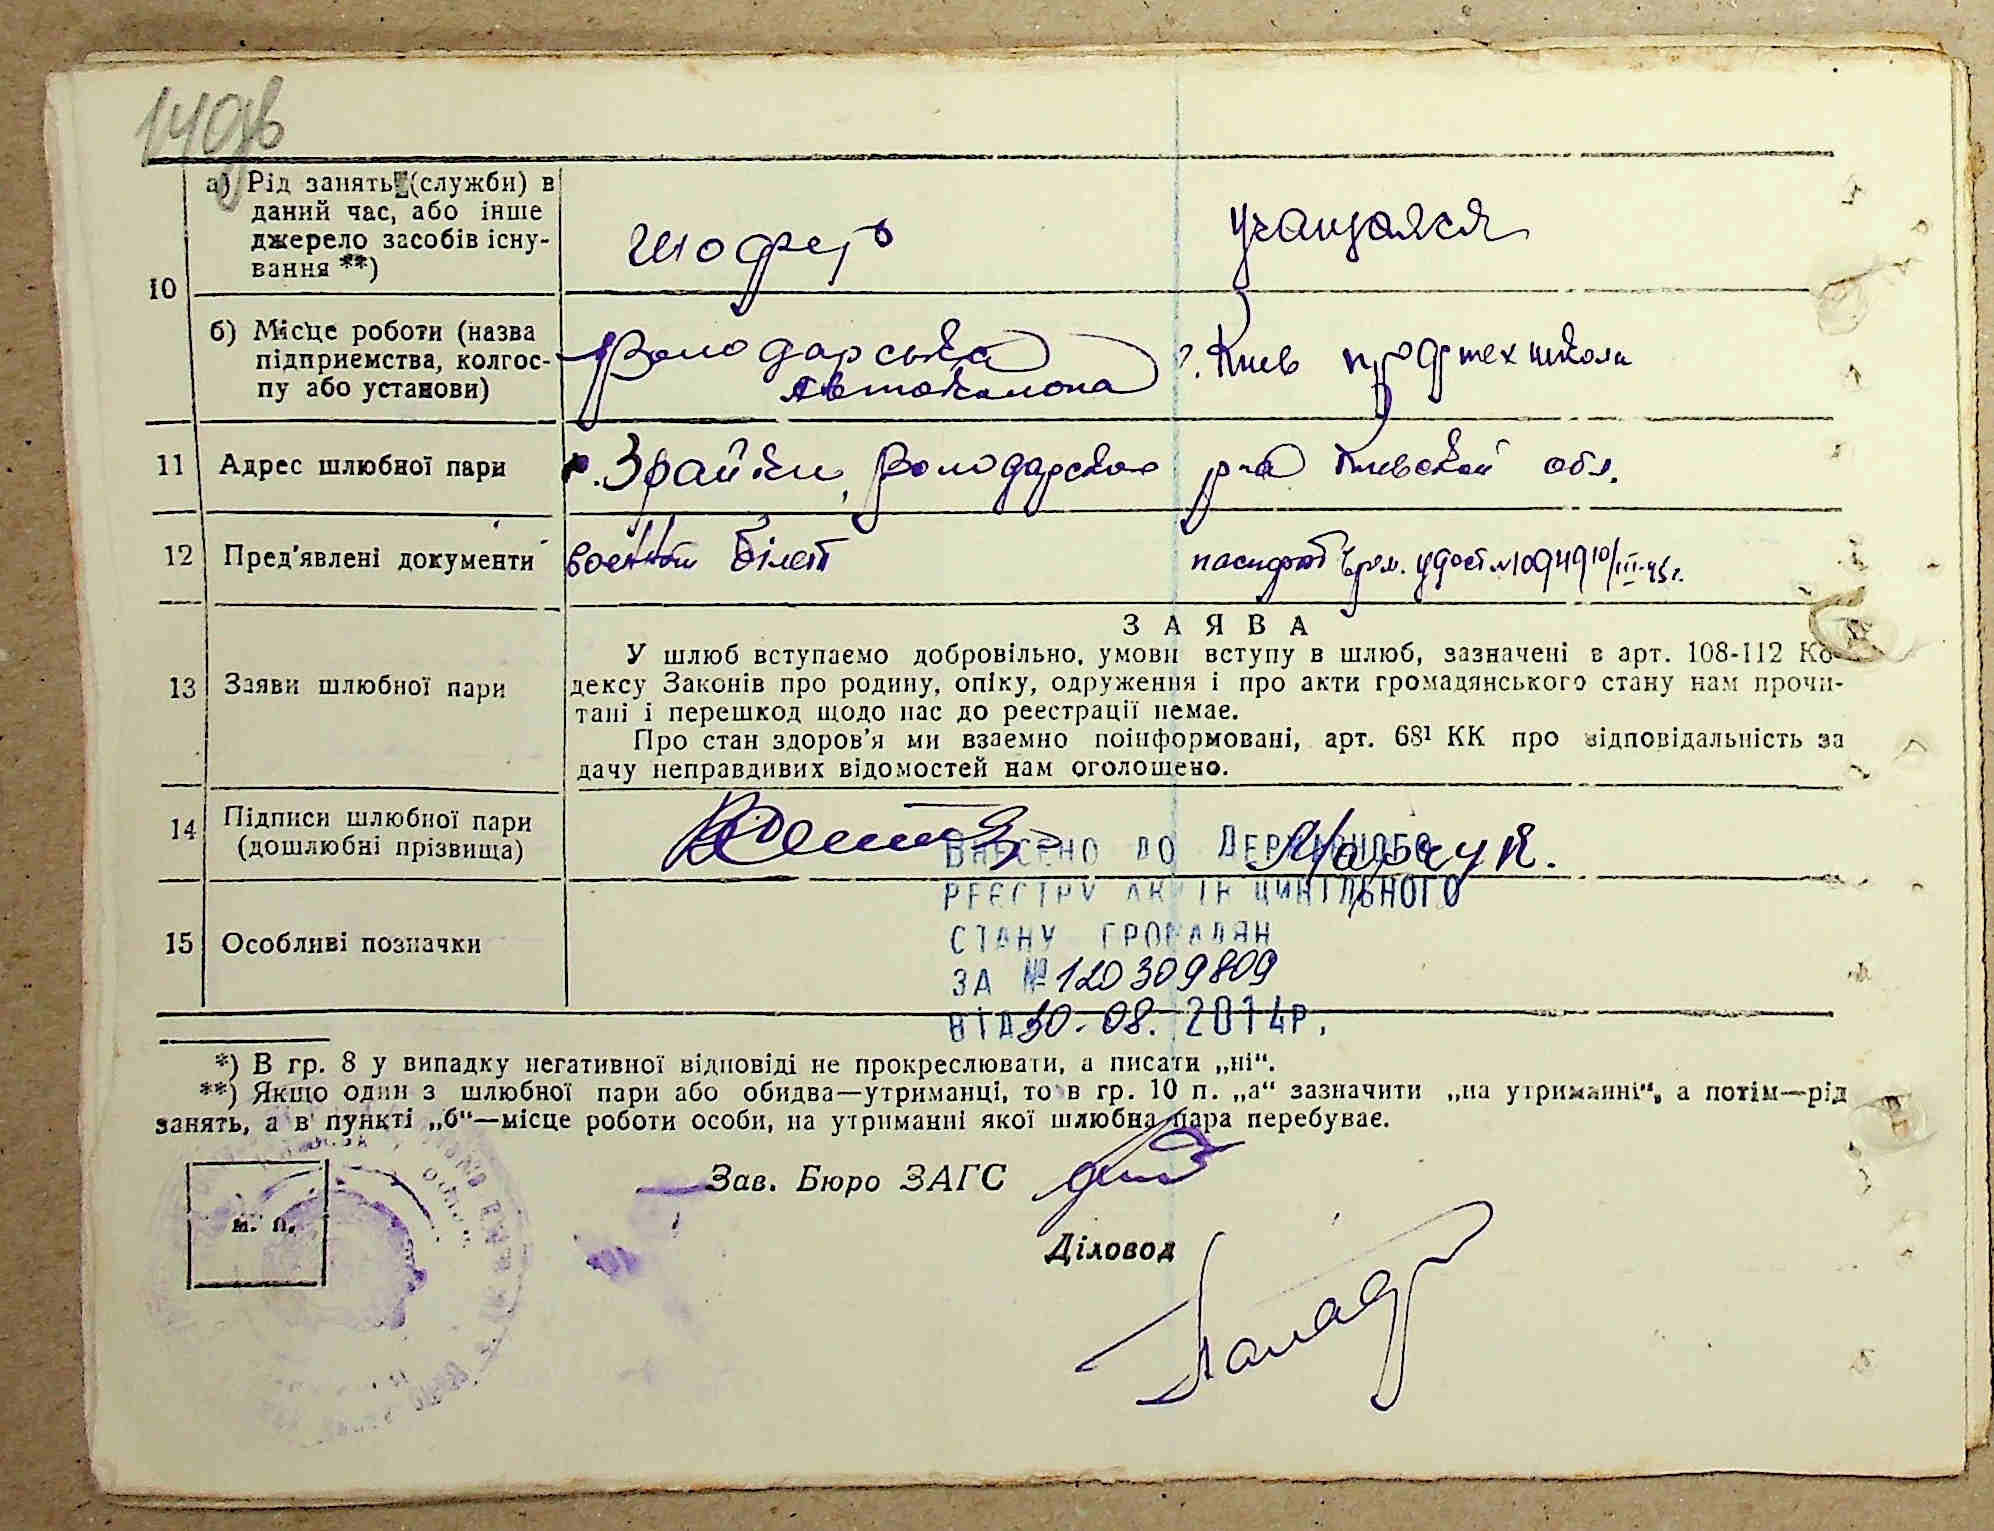 140зв
а) Рід занять (служби) в
даний час, або інше
джерело засобів існу-
вання **)
шофер
учащаяся
10
б) Місце роботи (назва
підприємства, колгос-
пу або установи)
Володарська
Автоколона
г. Киев профтехшкола
11 Адрес шлюбної пари
с. Зрайки, Володарского р-на Киевской обл.
12 Пред'явлені документи
воєнний білет
паспорт врем. удост. №
13 Заяви шлюбної пари
ЗАЯВА
У шлюб вступаємо добровільно, умови вступу в шлюб, зазначені в арт. 108-112 Ко-
дексу Законів про родину, опіку, одруження і про акти громадянського стану нам прочи-
тані і перешкод щодо нас до реєстрації немає.
Про стан здоров'я ми взаємно поінформовані, арт. 68¹ КК про відповідальність за
дачу неправдивих відомостей нам оголошено.
14 Підписи шлюбної пари
(дошлюбні прізвища)
15 Особливі позначки
ВНЕСЕНО ДО ДЕРЖАВНОГО
РЕЄСТРУ АКТІВ ЦИВІЛЬНОГО
СТАНУ ГРОМАДЯН
ЗА № 120309809
ВІД 30.08.2014р.
*) В гр. 8 у випадку негативної відповіді не прокреслювати, а писати „ні“.
**) Якщо один з шлюбної пари або обидва—утриманці, то в гр. 10 п. „а“ зазначити „на утриманні“, а потім—рід
занять, а в пункті „б“—місце роботи особи, на утриманні якої шлюбна пара перебуває.
м. п.
Зав. Бюро ЗАГС
Діловод